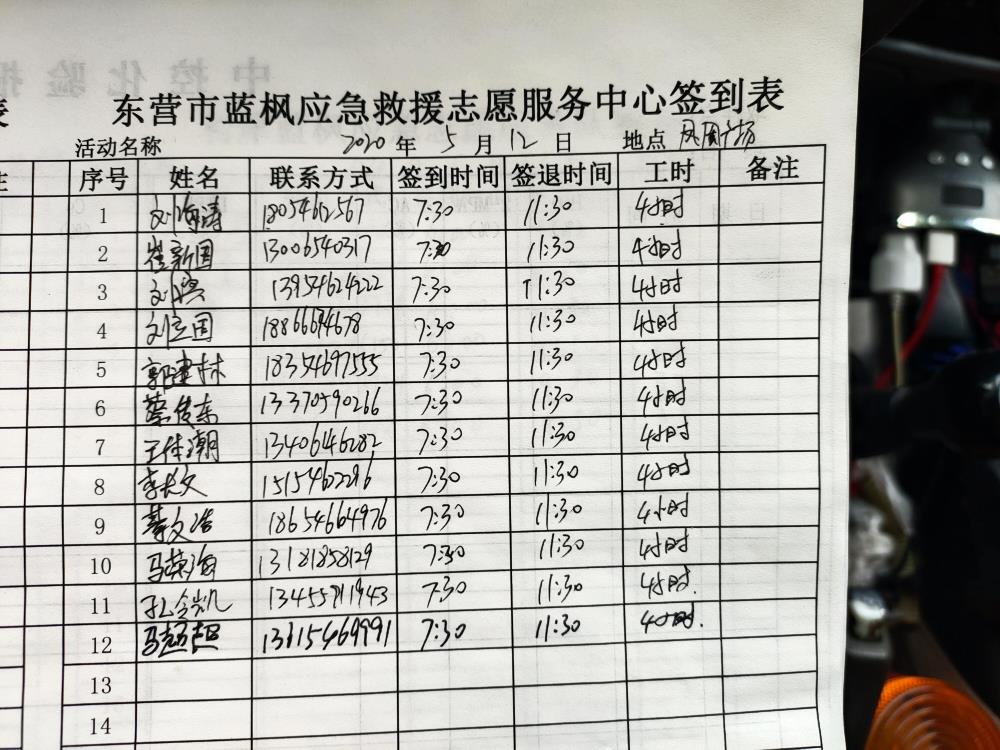 东营市蓝枫应急救援志愿服务中心签到表
活动名称 2020 年 5 月 12 日 地点
序号 姓名 联系方式 签到时间 签退时间 工时 备注
1 刘海涛 1805462567 7:30 11:30 4小时
2 崔新国 13006540317 7:30 11:30 4小时
3 13954624222 7:30 11:30 4小时
4 刘立国 7:30 11:30 4小时
5 郭建林 18354697555 7:30 11:30 4小时
6 蔡俊东 13370590266 7:30 11:30 4小时
7 13406146282 7:30 11:30 4小时
8 李长文 15154622296 7:30 11:30 4小时
9 18654664976 7:30 11:30 4小时
10 马荣海 13181858129 7:30 11:30 4小时
11 孔令凯 7:30 11:30 4小时.
12 7:30 11:30 4小时.
13
14